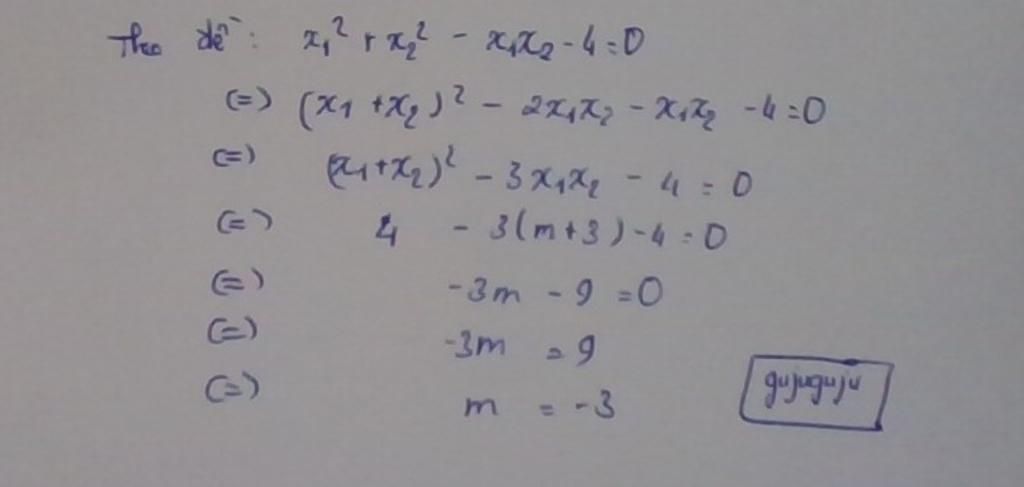 Theo đề: x₁² + x₂² - x₁x₂ - 4 = 0
(=) (x₁ + x₂)² - 2x₁x₂ - x₁x₂ - 4 = 0
(=) (x₁+x₂)² - 3x₁x₂ - 4 = 0
(=) 4 - 3(m+3) - 4 = 0
(=) -3m - 9 = 0
(=) -3m = 9
(=) m = -3
gujuguju